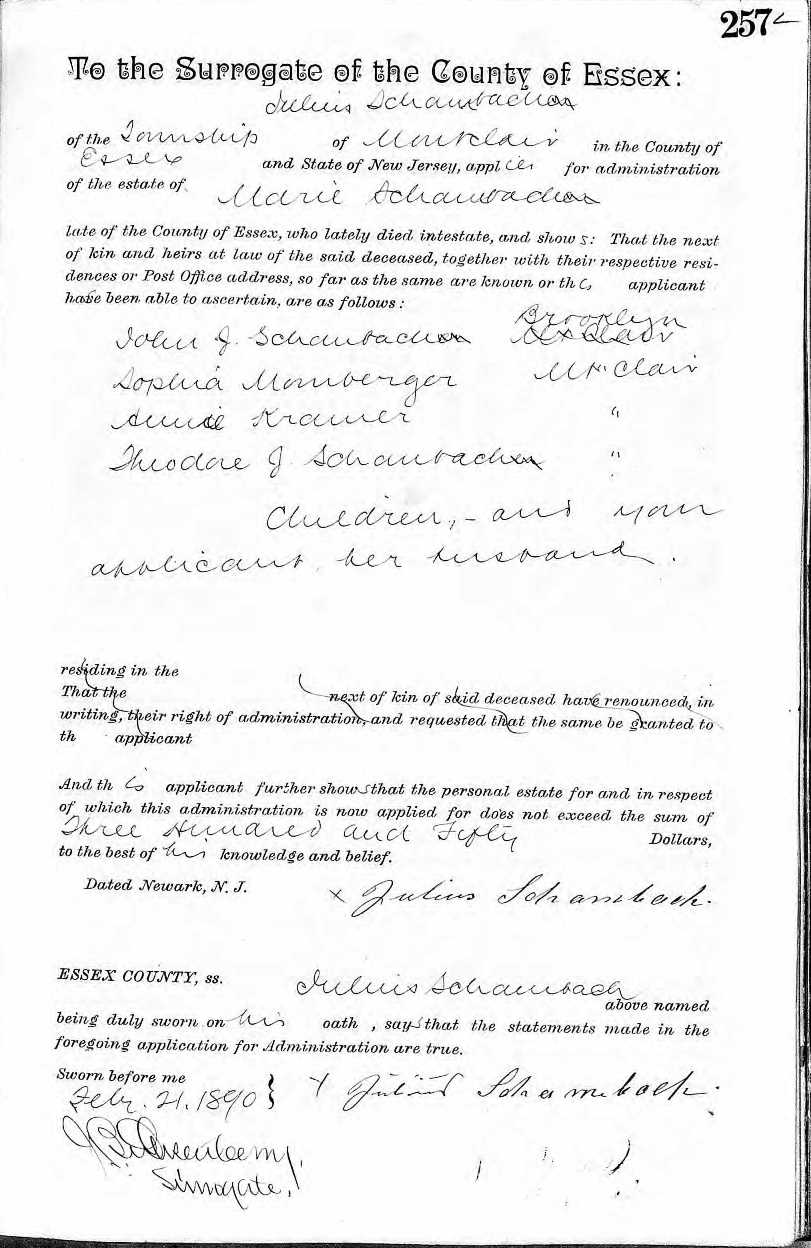 257
To the Surrogate of the County of Essex:
Julius Schambach
of the Township of Montclair in the County of
Essex and State of New Jersey, applies for administration
of the estate of Marie Schambach
late of the County of Essex, who lately died intestate, and shows: That the next
of kin and heirs at law of the said deceased, together with their respective resi-
dences or Post Office address, so far as the same are known or this applicant
has been able to ascertain, are as follows:
Brooklyn
John J. Schambach
Sophia Momberger Mt. Clair
Annie Kramer "
Theodore J. Schambach "
Children, - and your
applicant her husband.
residing in the
That the next of kin of said deceased have renounced, in
writing, their right of administration, and requested that the same be granted to
th applicant
And this applicant further shows that the personal estate for and in respect
of which this administration is now applied for does not exceed the sum of
Three Hundred and Fifty Dollars,
to the best of his knowledge and belief.
Dated Newark, N. J. x Julius Schambach.
ESSEX COUNTY, ss. Julius Schambach
above named
being duly sworn on his oath, says that the statements made in the
foregoing application for Administration are true.
Sworn before me
Feby. 21, 1890 } x Julius Schambach.
Surrogate.